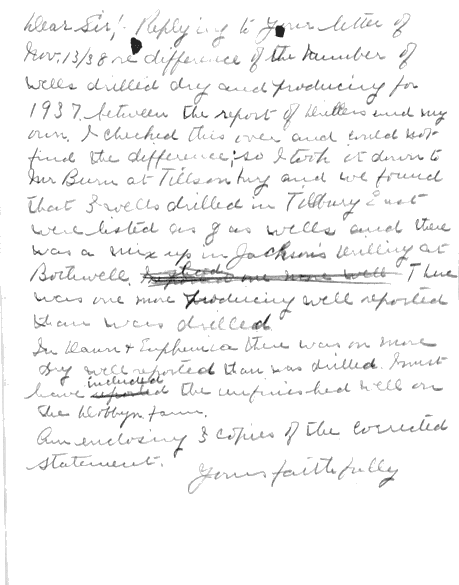 Dear Sir!- Replying to Your letter of
Nov. 13/38 re difference of the number of
wells drilled dry and producing for
1937 between the report of Drillers and my
own. I checked this over and could not
find the difference; so I took it down to
Mr Burn at Tillsonburg and we found
that 3 wells drilled in Tilbury East
were listed as gas wells and there
was a mix up in Jackson's drilling at
Bothwell. I had reported one more well There
was one more producing well reported
than was drilled.
In Dawn & Euphemia there was on more
dry well reported than was drilled. I must
have reported included the unfinished well on
the farm.
Am enclosing 3 copies of the corrected
statement.
Yours faithfully